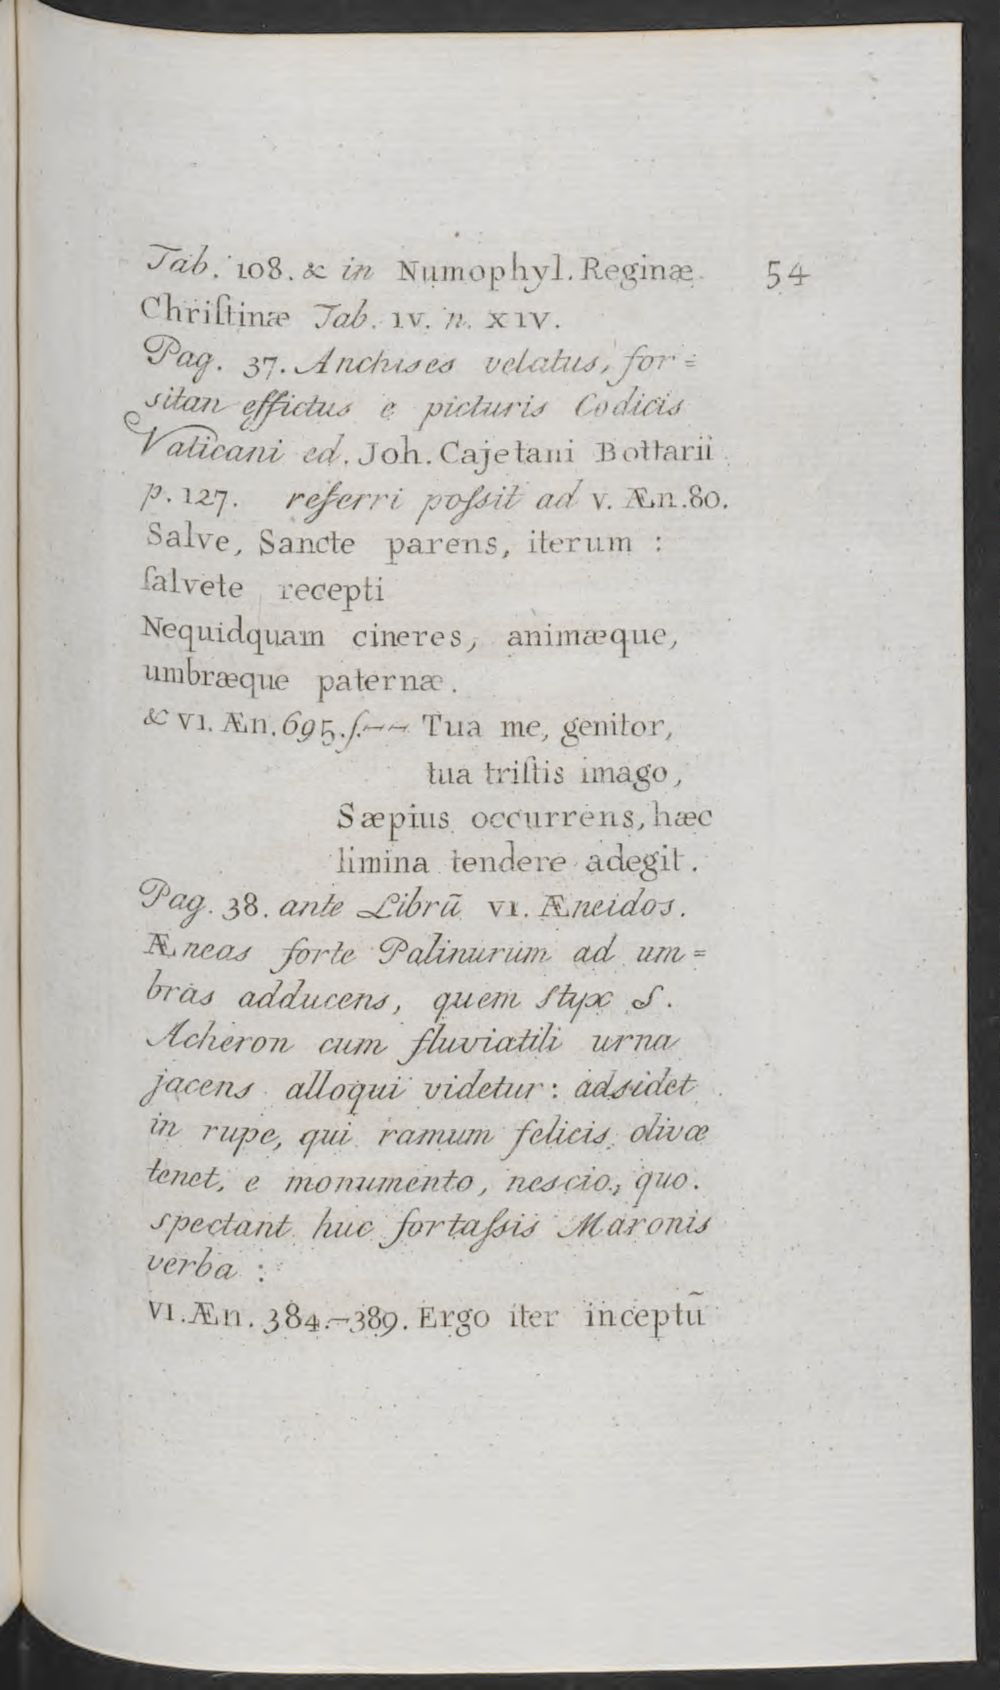 Tab. 108. & in Numophyl. Reginæ 54
Chriſtinæ Tab. IV. n. XIV.
Pag. 37. Anchises velatus, for=
sitan effictus e picturis Codicis
Vaticani ed. Joh. Cajetani Bottarii
p. 127. referri poſsit ad V. Æn. 80.
Salve, Sancte parens, iterum :
ſalvete recepti
Nequidquam cineres, animæque,
umbræque paternæ.
& VI. Æn. 695. ſ. -- Tua me, genitor,
tua triſtis imago,
Sæpius occurrens, hæc
limina tendere adegit.
Pag. 38. ante Librũ VI. Æneidos.
Æneas forte Palinurum ad um=
bras adducens, quem Styx S.
Acheron cum fluviatili urna
jacens alloqui videtur: adsidet
in rupe, qui ramum felicis olivæ
tenet, e monumento, nescio, quo.
spectant huc fortaſsis Maronis
verba :
VI. Æn. 384.-389. Ergo iter inceptũ